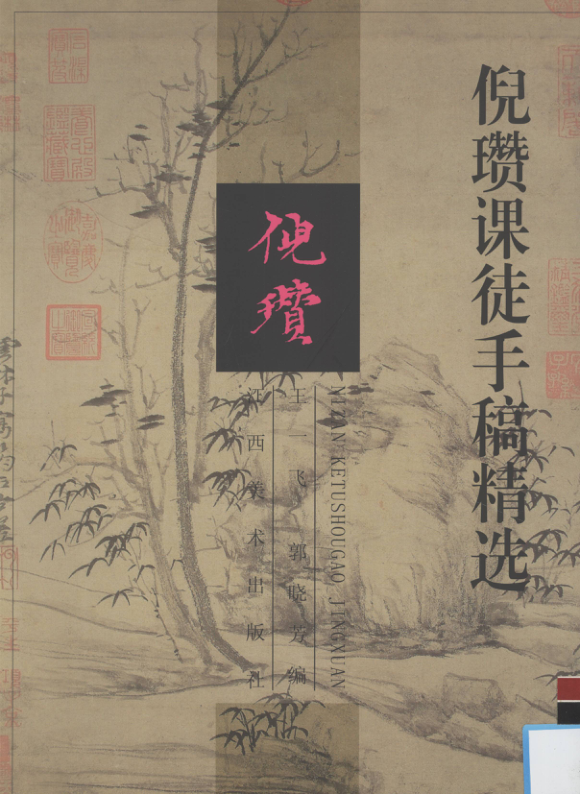 倪瓒课徒手稿精选
倪
瓚
NI ZAN KETUSHOUGAO JINGXUAN
王一飞 郭晓芳编
江西美术出版社